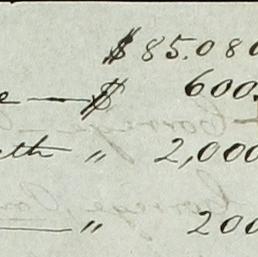 $ 85.080
e — $ 600.
th " 2,000
— " 200